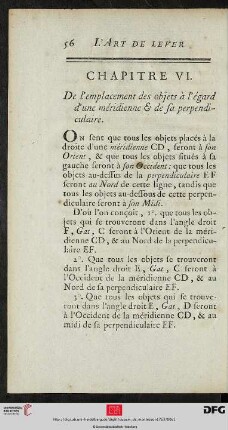 56 L'ART DE LEVER
CHAPITRE VI.
De l'emplacement des objets à l'égard
d'une méridienne & de sa perpendi-
culaire.
ON sent que tous les objets placés à la
droite d'une méridienne CD, seront à son
Orient, & que tous les objets situés à sa
gauche seront à son Occident; que tous les
objets au-dessus de la perpendiculaire EF
seront au Nord de cette ligne, tandis que
tous les objets au-dessous de cette perpen-
diculaire seront à son Midi.
D'où l'on conçoit, 1°. que tous les ob-
jets qui se trouveront dans l'angle droit
F, Gat, C seront à l'Orient de la méri-
dienne CD, & au Nord de la perpendicu-
laire EF.
2°. Que tous les objets se trouveront
dans l'angle droit E, Gat, C seront à
l'Occident de la méridienne CD, & au
Nord de sa perpendiculaire EF.
3°. Que tous les objets qui se trouve-
ront dans l'angle droit E, Gat, D seront
à l'Occident de la méridienne CD, & au
midi de sa perpendiculaire EF.
UNIVERSITÄTS-
BIBLIOTHEK
HEIDELBERG
DFG